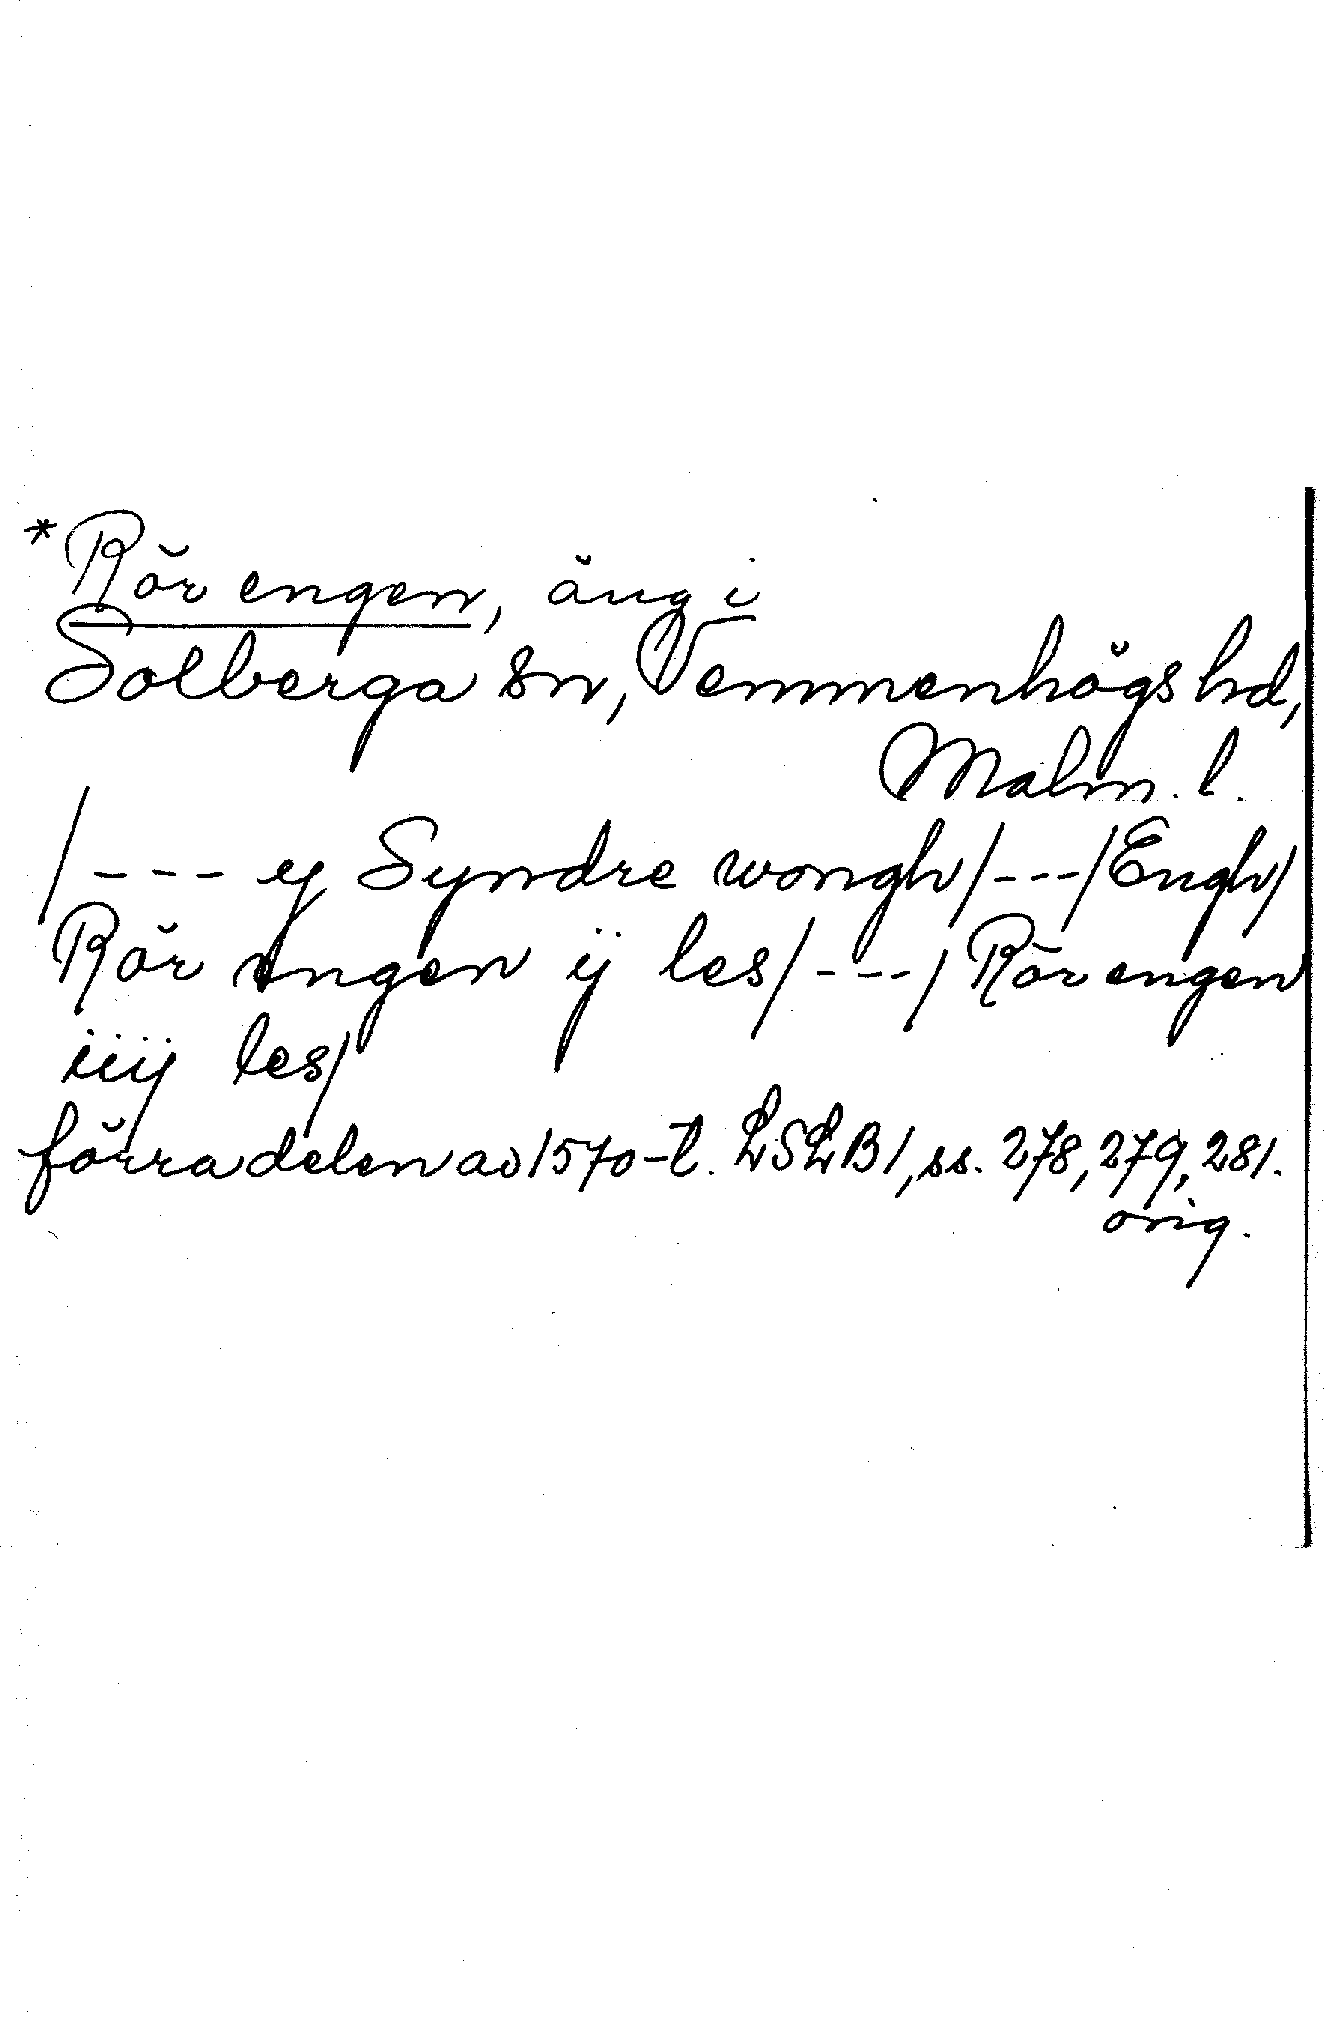 *Rör engen, äng i
Solberga sn, Vemmenhögs hd,
Malm. l.
/--- ej Syndre wongh/---/Engh/
Rör engen ij les/---/Rör engen
iiij les/
förra delen av 1570-t. LSLB1, ss. 278, 279, 281.
orig.